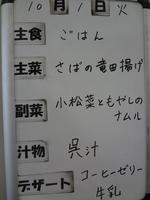 10月1日火
主食 ごはん
主菜 さばの竜田揚げ
副菜 小松菜ともやしの
ナムル
汁物 呉汁
デザート コーヒーゼリー
牛乳